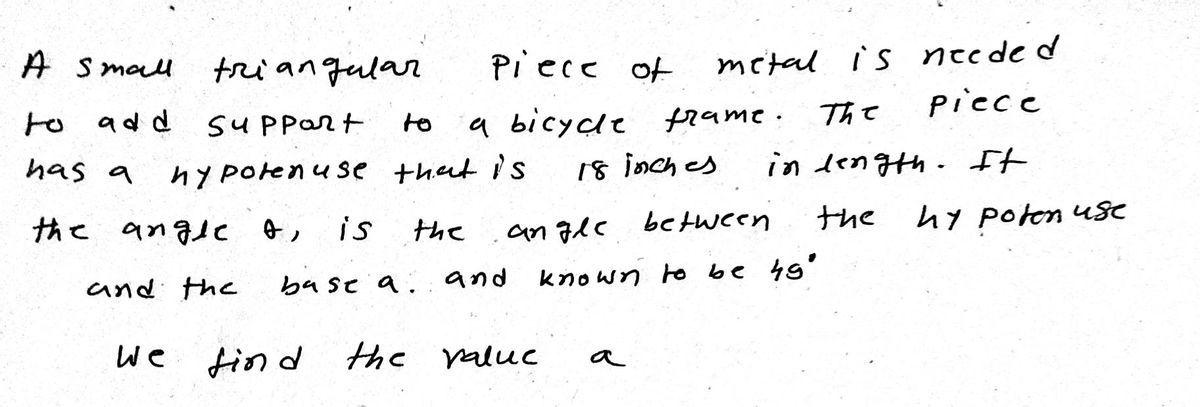 A small triangular Piece of metal is needed
to add support to a bicycle frame. The piece
has a hypotenuse that is 18 inches in length. If
the angle θ, is the angle between the hypotenuse
and the base a. and known to be 45°
We find the value a